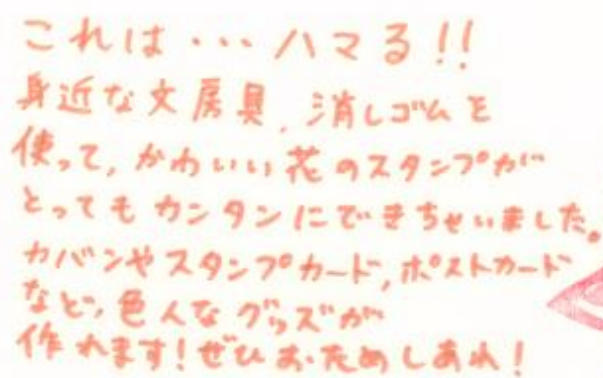 これは・・・ハマる!!
身近な文房具、消しゴムを
使って、かわいい花のスタンプが
とってもカンタンにできちゃいました。
カバンやスタンプカード、ポストカード
など、色んなグッズが
作れます!ぜひおためしあれ!